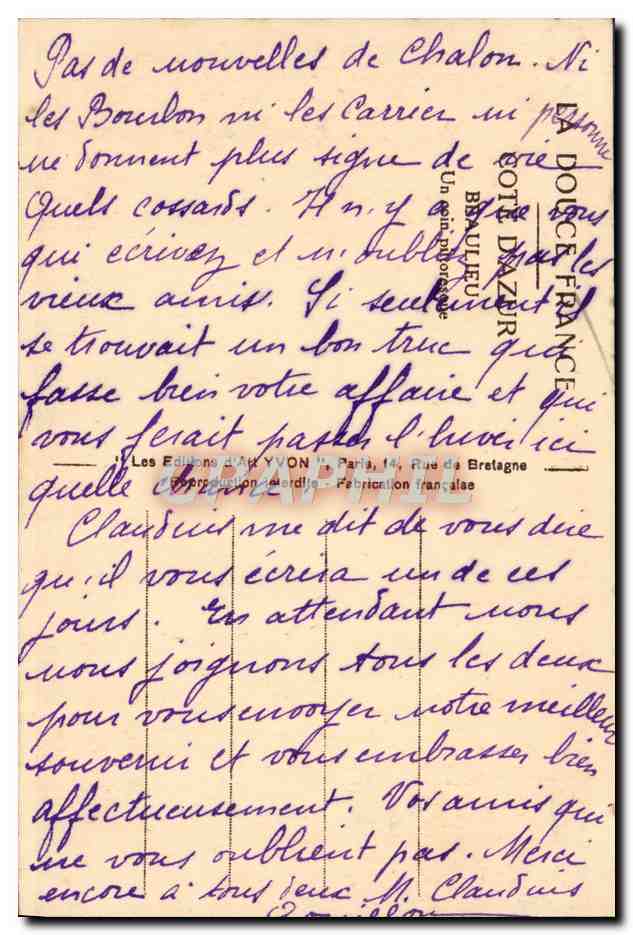 Pas de nouvelles de Chalon. Ni
les Bourbon ni les Carrier ni personne
ne donnent plus signe de vie
Quels cossards. Il n'y a que vous
qui écrivez et n'oubliez pas les
vieux amis. Si seulement il
se trouvait un bon truc qui
fasse bien votre affaire et qui
vous ferait passer l'hiver ici
quelle chance
Claudius me dit de vous dire
qu'il vous écrira un de ces
jours. En attendant nous
nous joignons tous les deux
pour vous envoyer notre meilleur
souvenir et vous embrasser bien
affectueusement. Vos amis qui
ne vous oublient pas. Merci
encore à tous deux M. Claudius
LA DOUCE FRANCE
COTE D'AZUR
BEAULIEU
Un coin pittoresque
"Les Editions d'Art YVON" Paris, 14, Rue de Bretagne
Reproduction interdite Fabrication française
DELCAMPHIL